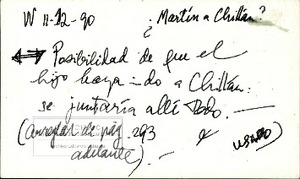 W 11-12-90 ¿Martín a Chillán?
Posibilidad de que el
hijo haya ido a Chillán:
se juntaría allí todo. —
(Arreglar de pág. 293
adelante). —
USADO